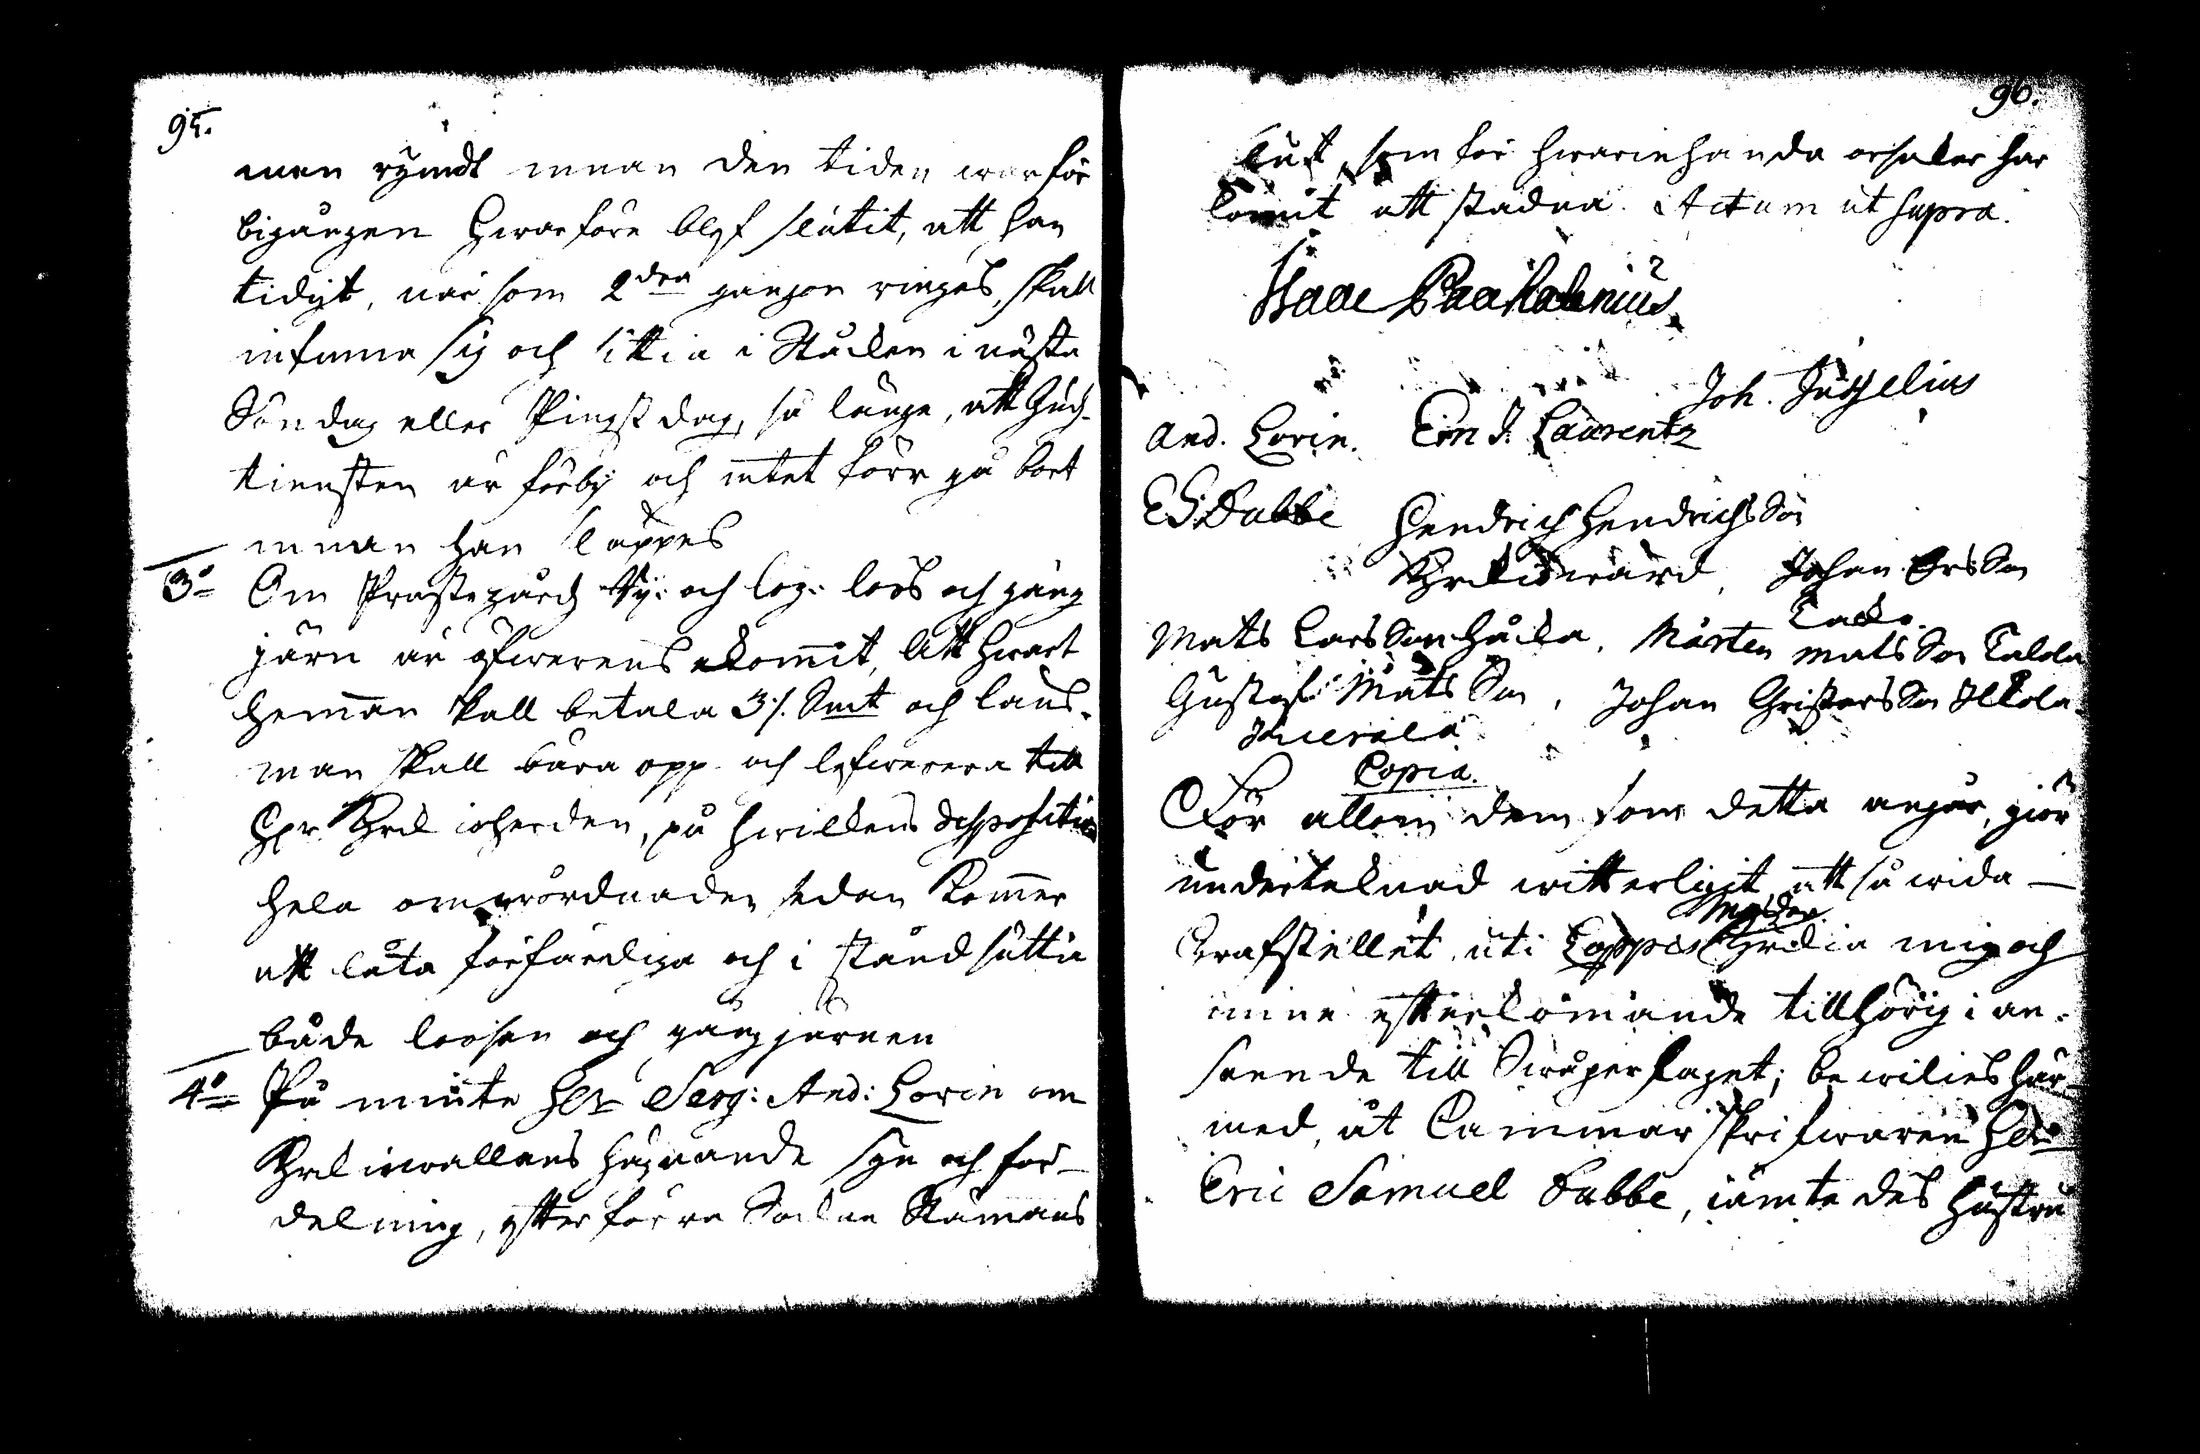 95.
men rymdt innan den tiden war för
bigången hwarföre blef slutit, att han
tidigt, när som 2dra gangon ringes, skall
infinna sig och sittia i Stocken i nästa
Söndag eller Pingstdag, så länge, att Gudz-
tiensten är förbij och intet förr gå bort
innan han släppes
3o Om Prästegårdz Ny: och log: loos och gång
järn är öfwerenskommit, att hwart
hemman skall betala 3 /. Smt och läns-
man skall bära opp och lefwerera till
Hr Kyrckioherden, på hwilckens disposition
hela omwårdnaden sedan kommer
att låta förfärdiga och i ståndsättia
både loosen och gångjärnen
4o På minte Her Serg: And: Lorin om
Kyrckiowallens hägnande syn och för-
delning, efter förra Sockne Stämans
96.
sluft, som för hwariehanda orsaker har
komit att stadna. Actum ut supra.
Isaac Packalenius
Joh. Juselius
And. Lorin. Eric J. Laurentz
E S: Dubbe Hendrich Hendrichs Son
Kyrckiowärd, Johan Ers Son
Mats Lars Son Håcka, Mårten Mats Son Talola
Gustaf Mats Son, Johan Christers Son Ilkola
Copia.
För allom dem som detta angår, giör
undertecknad witterligit, att så wida
Grafstellet uti Loppis Moder Kyrckia mig och
mine efterkommande tillhörig i an-
seende till Swågerskapet; bewilies här-
med, åt Cammarskrifwaren Her
Eric Samuel Dubbe, jämte des hustru